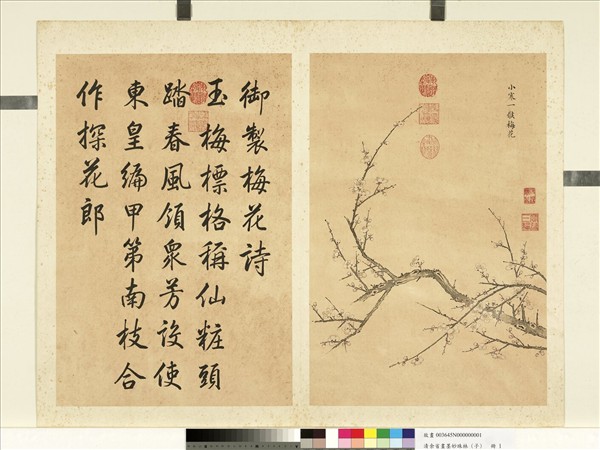 小寒一候梅花
御製梅花詩
玉梅標格稱仙粧頭
踏春風領衆芳設使
東皇編甲第南枝合
作探花郎
故畫 003645N000000001
清余省畫墨妙珠林（子） 冊 1